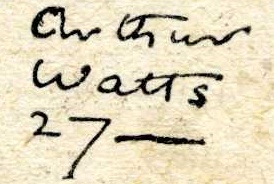 Arthur
Watts
27—